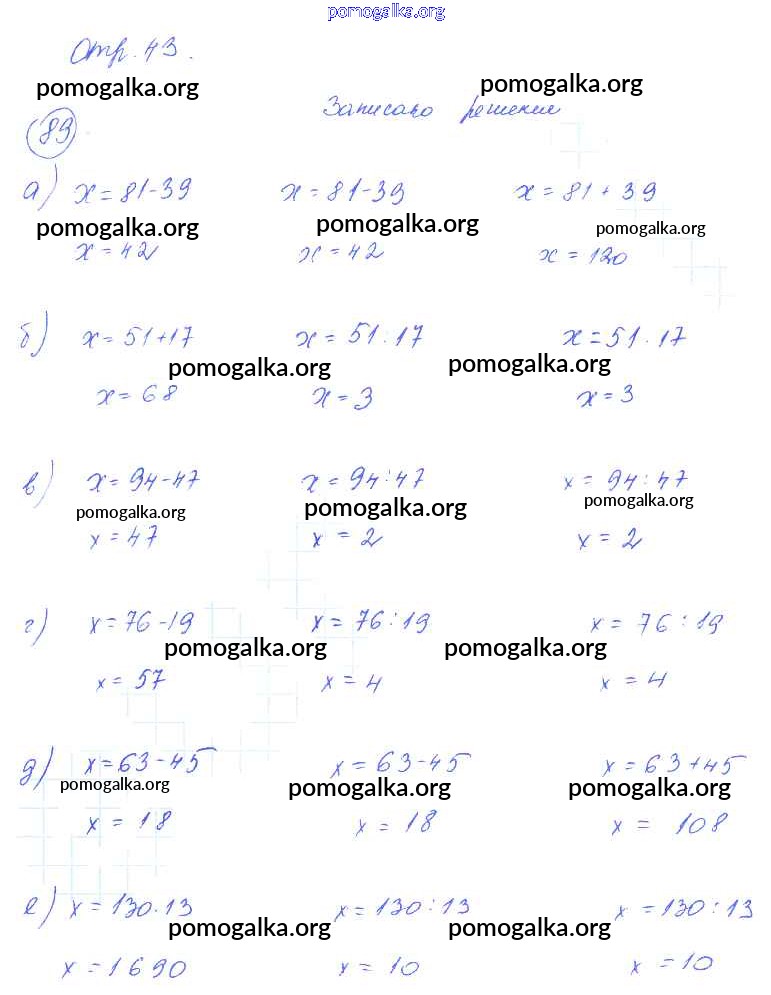 pomogalka.org
Стр. 43.
pomogalka.org pomogalka.org
Записано решение
89
а) x = 81 - 39 x = 81 - 39 x = 81 + 39
pomogalka.org pomogalka.org pomogalka.org
x = 42 x = 42 x = 120
б) x = 51 + 17 x = 51 : 17 x = 51 . 17
pomogalka.org pomogalka.org
x = 68 x = 3 x = 3
в) x = 94 - 47 x = 94 : 47 x = 94 : 47
pomogalka.org pomogalka.org pomogalka.org
x = 47 x = 2 x = 2
г) x = 76 - 19 x = 76 : 19 x = 76 : 19
pomogalka.org pomogalka.org
x = 57 x = 4 x = 4
д) x = 63 - 45 x = 63 - 45 x = 63 + 45
pomogalka.org pomogalka.org pomogalka.org
x = 18 x = 18 x = 108
е) x = 130 . 13 x = 130 : 13 x = 130 : 13
pomogalka.org pomogalka.org
x = 1690 x = 10 x = 10